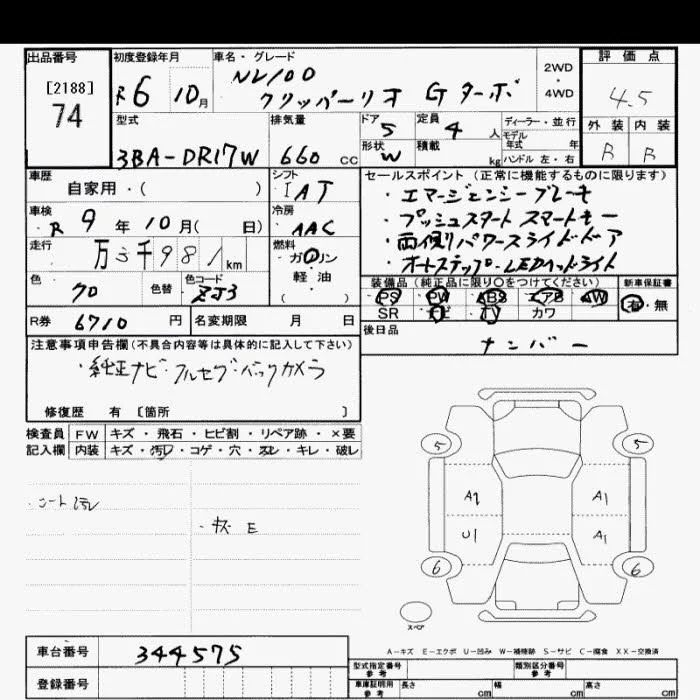 出品番号
[2188]
74
初度登録年月
R6 10月
車名・グレード
NV100
クリッパーリオ Gターボ
2WD
・
4WD
評価点
4.5
外装 内装
B B
型式
3BA-DR17W
排気量
660 cc
ドア
5
定員
4 人
形状
W
積載
kg
ディーラー・並行
モデル
年式 年
ハンドル 左・右
車歴
自家用・( )
シフト
IAT
車検
R 9 年 10 月( 日)
冷房
AAC
走行
万 3千981 km
燃料
ガソリン
・
軽油
( )
色
クロ
色替
色コード
ZJ3
R券 6710 円
名変期限 月 日
セールスポイント(正常に機能するものに限ります)
・エマージェンシーブレーキ
・プッシュスタート スマートキー
・両側パワースライドドア
・オートステップ・LEDヘッドライト
装備品(純正品に限り○をつけてください)
PS・PW・ABS・エアB・AW
SR・ナビ・TV カワ
新車保証書
有・無
後日品
ナンバー
注意事項申告欄(不具合内容等は具体的に記入して下さい)
・純正ナビ・フルセグ・バックカメラ
修復歴 有 [箇所 ]
検査員
記入欄
FW キズ・飛石・ヒビ割・リペア跡・×要
内装 キズ・汚レ・コゲ・穴・スレ・キレ・破レ
・シート汚レ
・キズ E
5
5
A1
U1
A1
A1
6
6
スペア
A-キズ E-エクボ U-凹み W-補修跡 S-サビ C-腐食 XX-交換済
車台番号
344575
登録番号
型式指定番号
参考
類別区分番号
参考
車庫証明用
参考
長さ cm 幅 cm 高さ cm